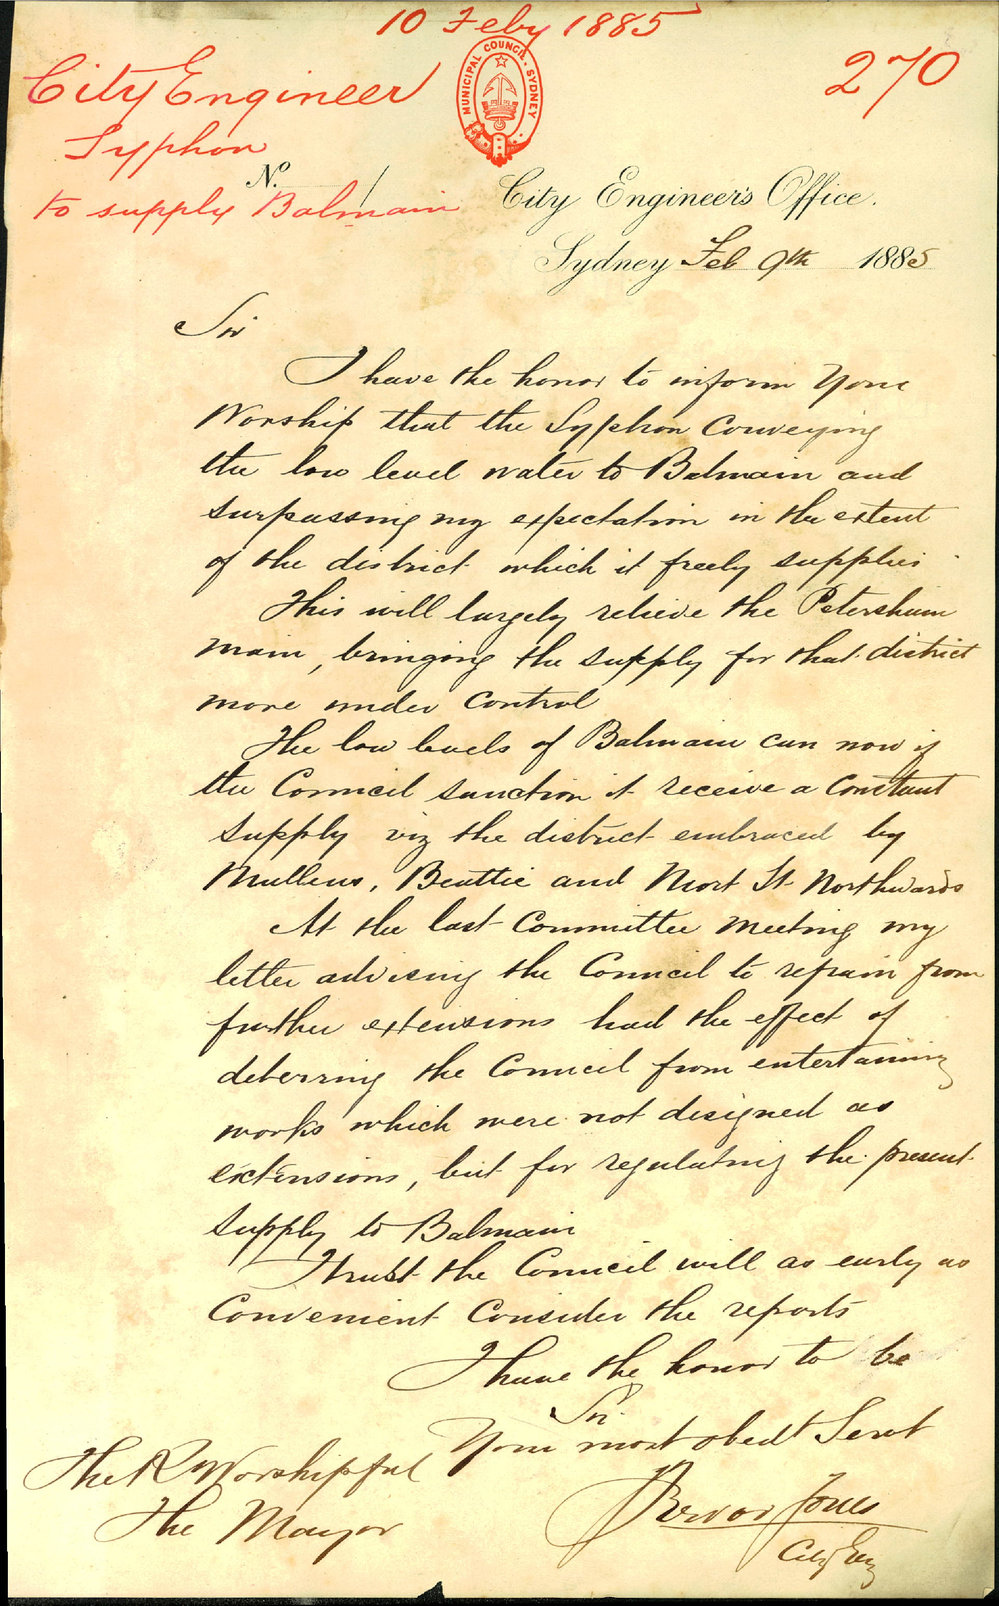 10 Feby 1885
MUNICIPAL COUNCIL. SYDNEY
270
City Engineer
Syphon
to supply Balmain
No.
City Engineer's Office.
Sydney Feb 9th 1885
Sir
I have the honor to inform Your
Worship that the Syphon Conveying
the low level water to Balmain and
surpassing my expectation in the extent
of the district which it freely supplies.
This will largely relieve the Petersham
main, bringing the supply for that district
more under control
The low levels of Balmain can now if
the Council sanction it receive a Constant
supply viz the district embraced by
Mullens, Beattie and Mort St Northwards
At the last Committee meeting my
letter advising the Council to refrain from
further extensions had the effect of
deterring the Council from entertaining
works which were not designed as
extensions, but for regulating the present
supply to Balmain
I trust the Council will as early as
Convenient Consider the reports
I have the honor to be
Sir
Your most obedt Servt
Trevor Jones
City Eng
The R Worshipful
The Mayor